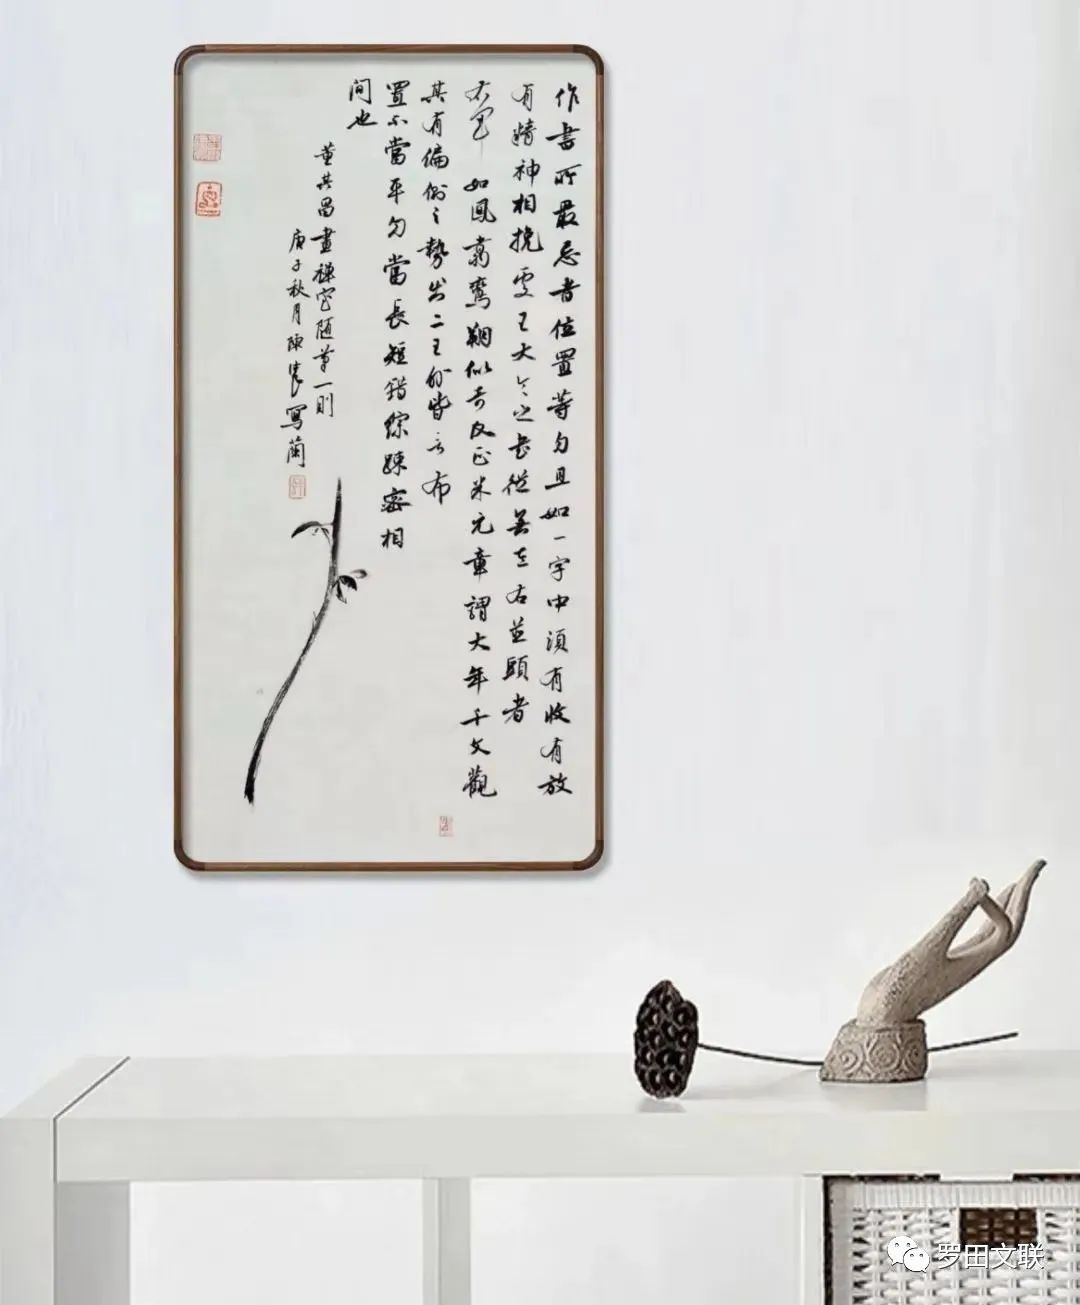 作書所最忌者位置等勻且如一字中須有收有放
有精神相挽處王大令之書從無左右並頭者
右軍如鳳翥鸞翔似奇反正米元章謂大年千文觀
其有偏側之勢出二王外皆言布
置不當平勻當長短錯綜疎密相
間也
董其昌畫禪室随筆一則
庚子秋月陳寫蘭
罗田文联